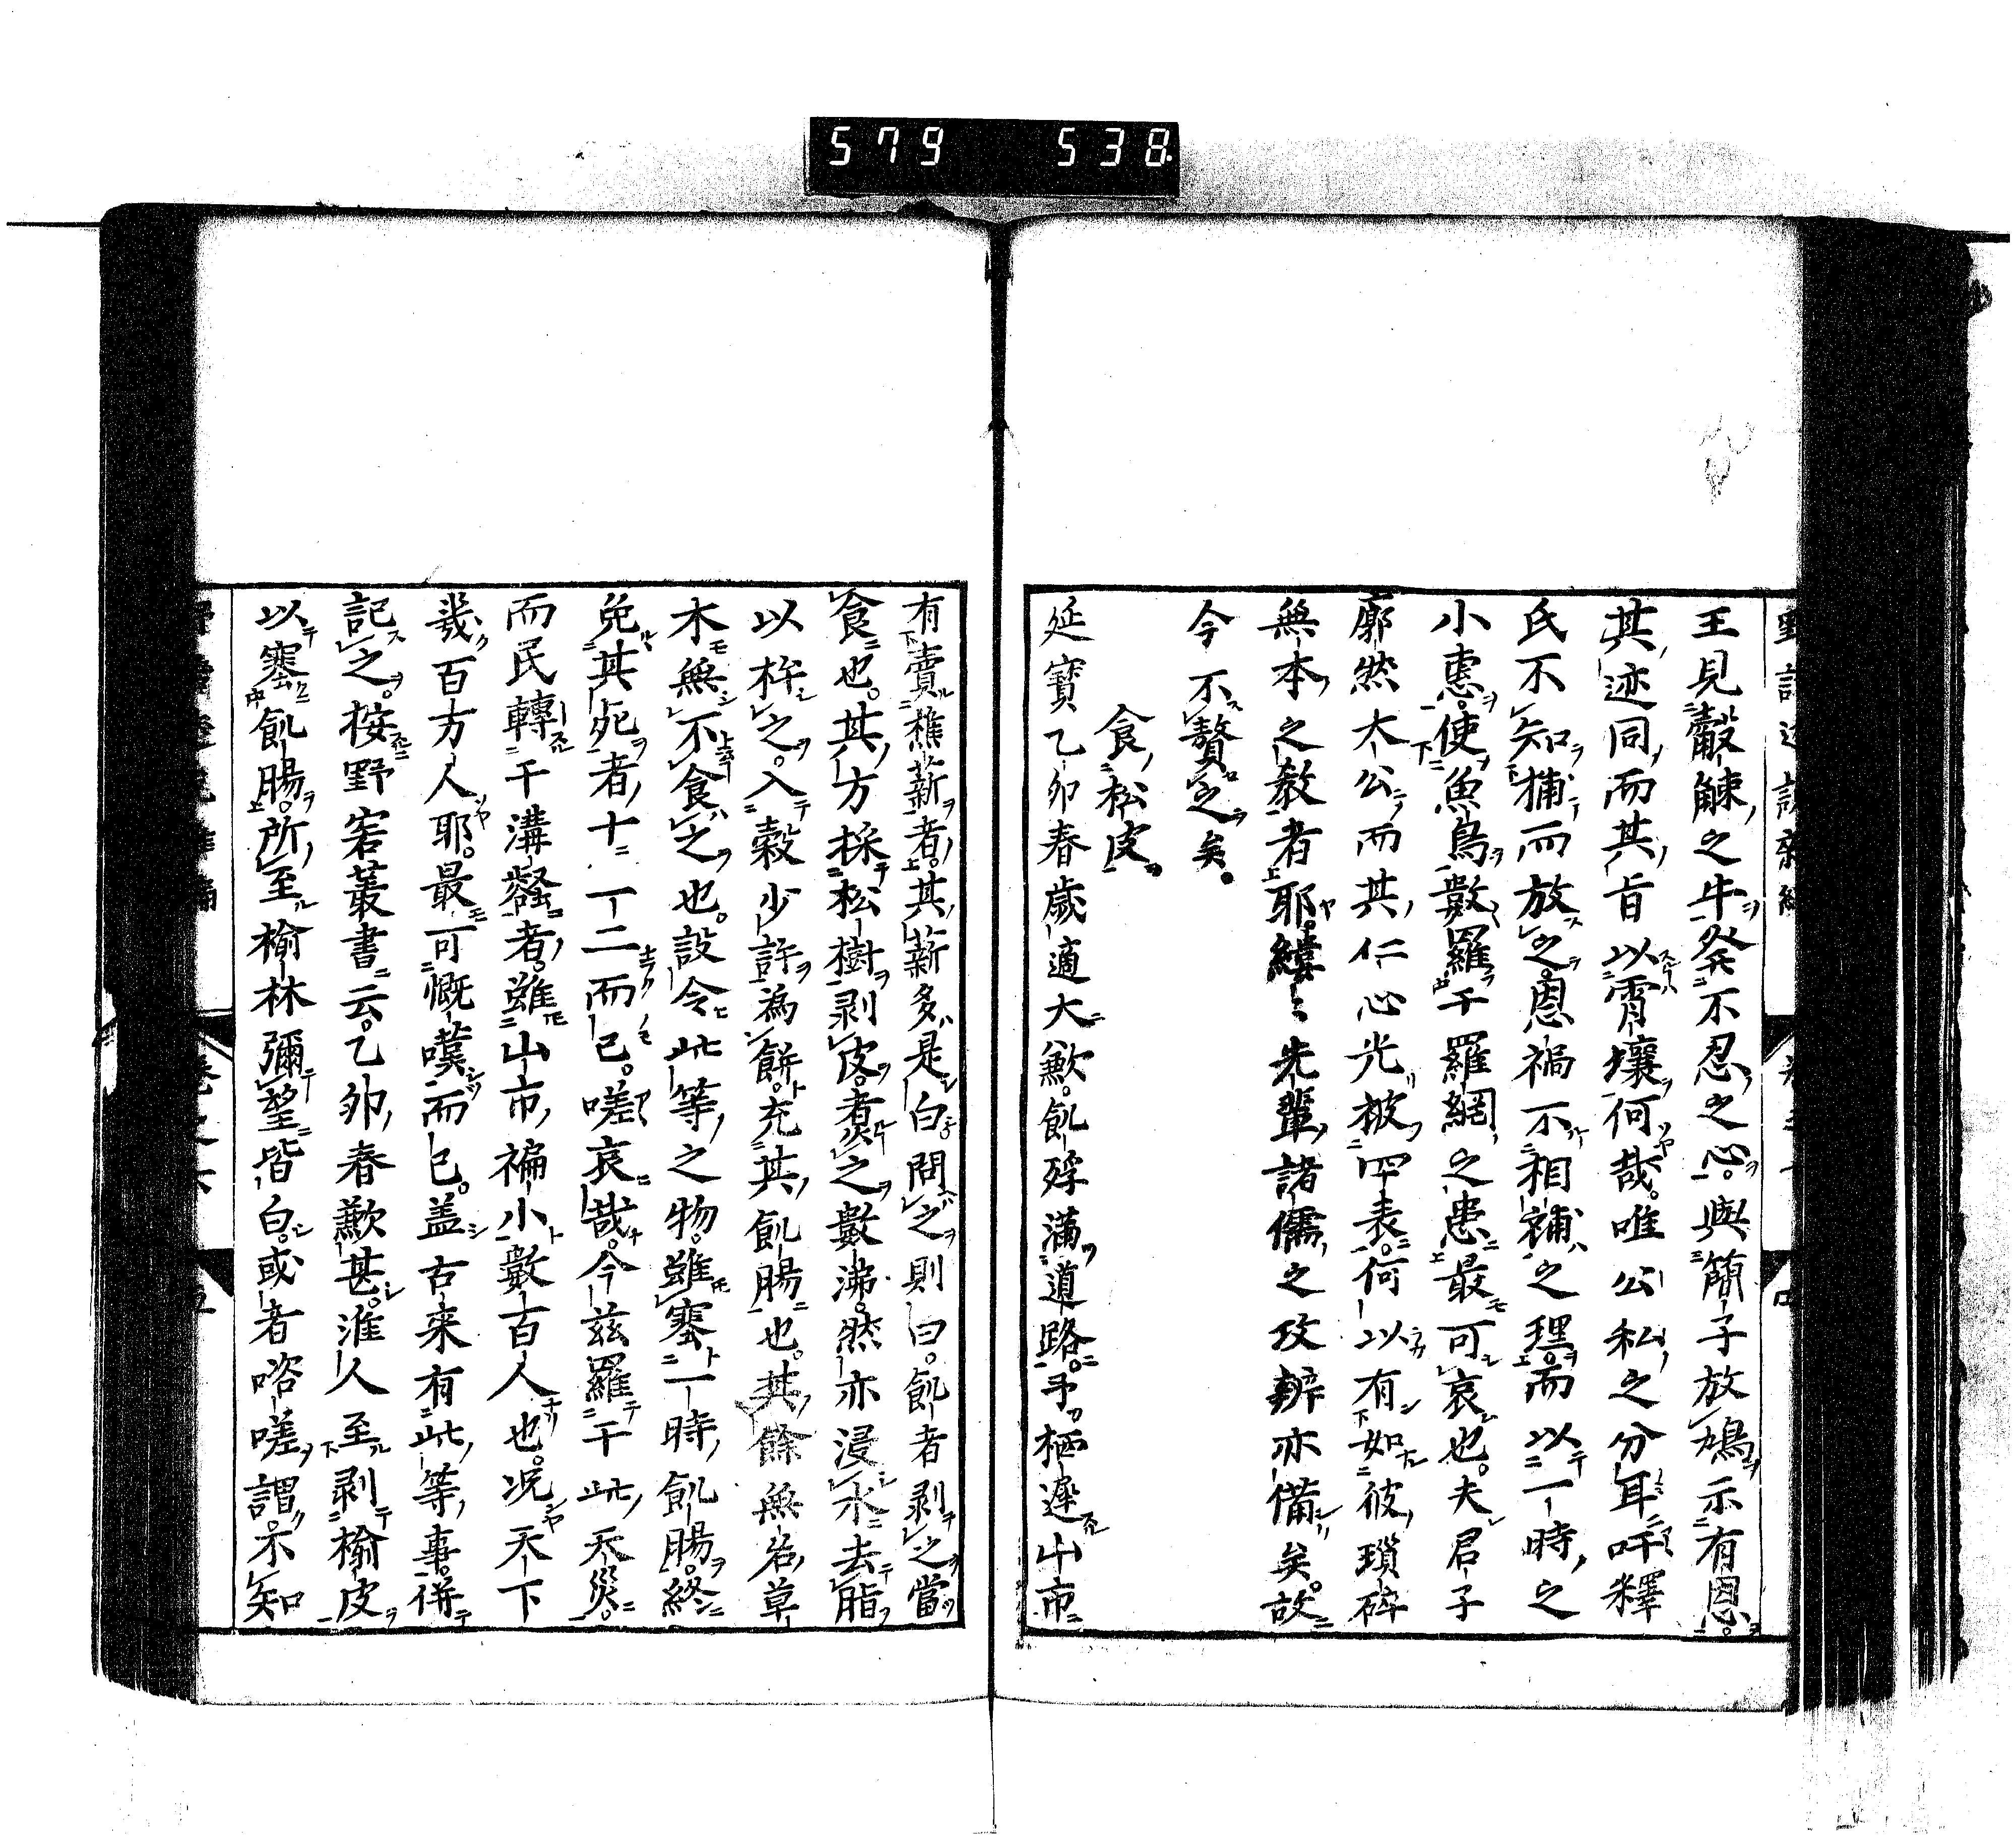 579 538
王見觳觫之牛癸不忍之心。與簡子放鳩示有恩。
其迹同而其旨以霄壤何哉。唯公私之分耳吁釋
氏不知捕而放之。恩禍不相補之理。而以一時之
小恵。使魚鳥數羅于羅網之患最可哀也。夫君子
廓然大公而其仁心光被四表。何以有如彼瑣碎
無本之教者耶。縷〻先輩諸儒之攻辨亦備矣。故
今不贅之矣。
食松皮。
延寶乙卯春歳適大歉。飢殍滿道路。予栖遲山市
有賣樵薪者。其薪多是白問之則曰。飢者剥之當
食也。其方採松樹剥皮。煮之數沸。然亦浸水去脂
以杵之。入穀少許為餅。充其飢腸也。其餘無名草
木無不食之也。設令此等之物。雖塞一時飢腸。終
免其死者十一二而已。嗟哀哉。今玆羅于此天災。
而民轉于溝壑者。雖山市褊小數百人也。况天下
幾百方人耶。最可慨嘆而已。盖古来有此等事。併
記之。按野客叢書云。乙卯春歉甚。淮人至剥榆皮
以塞飢腸。所至榆林彌望皆白。或者咨嗟謂不知